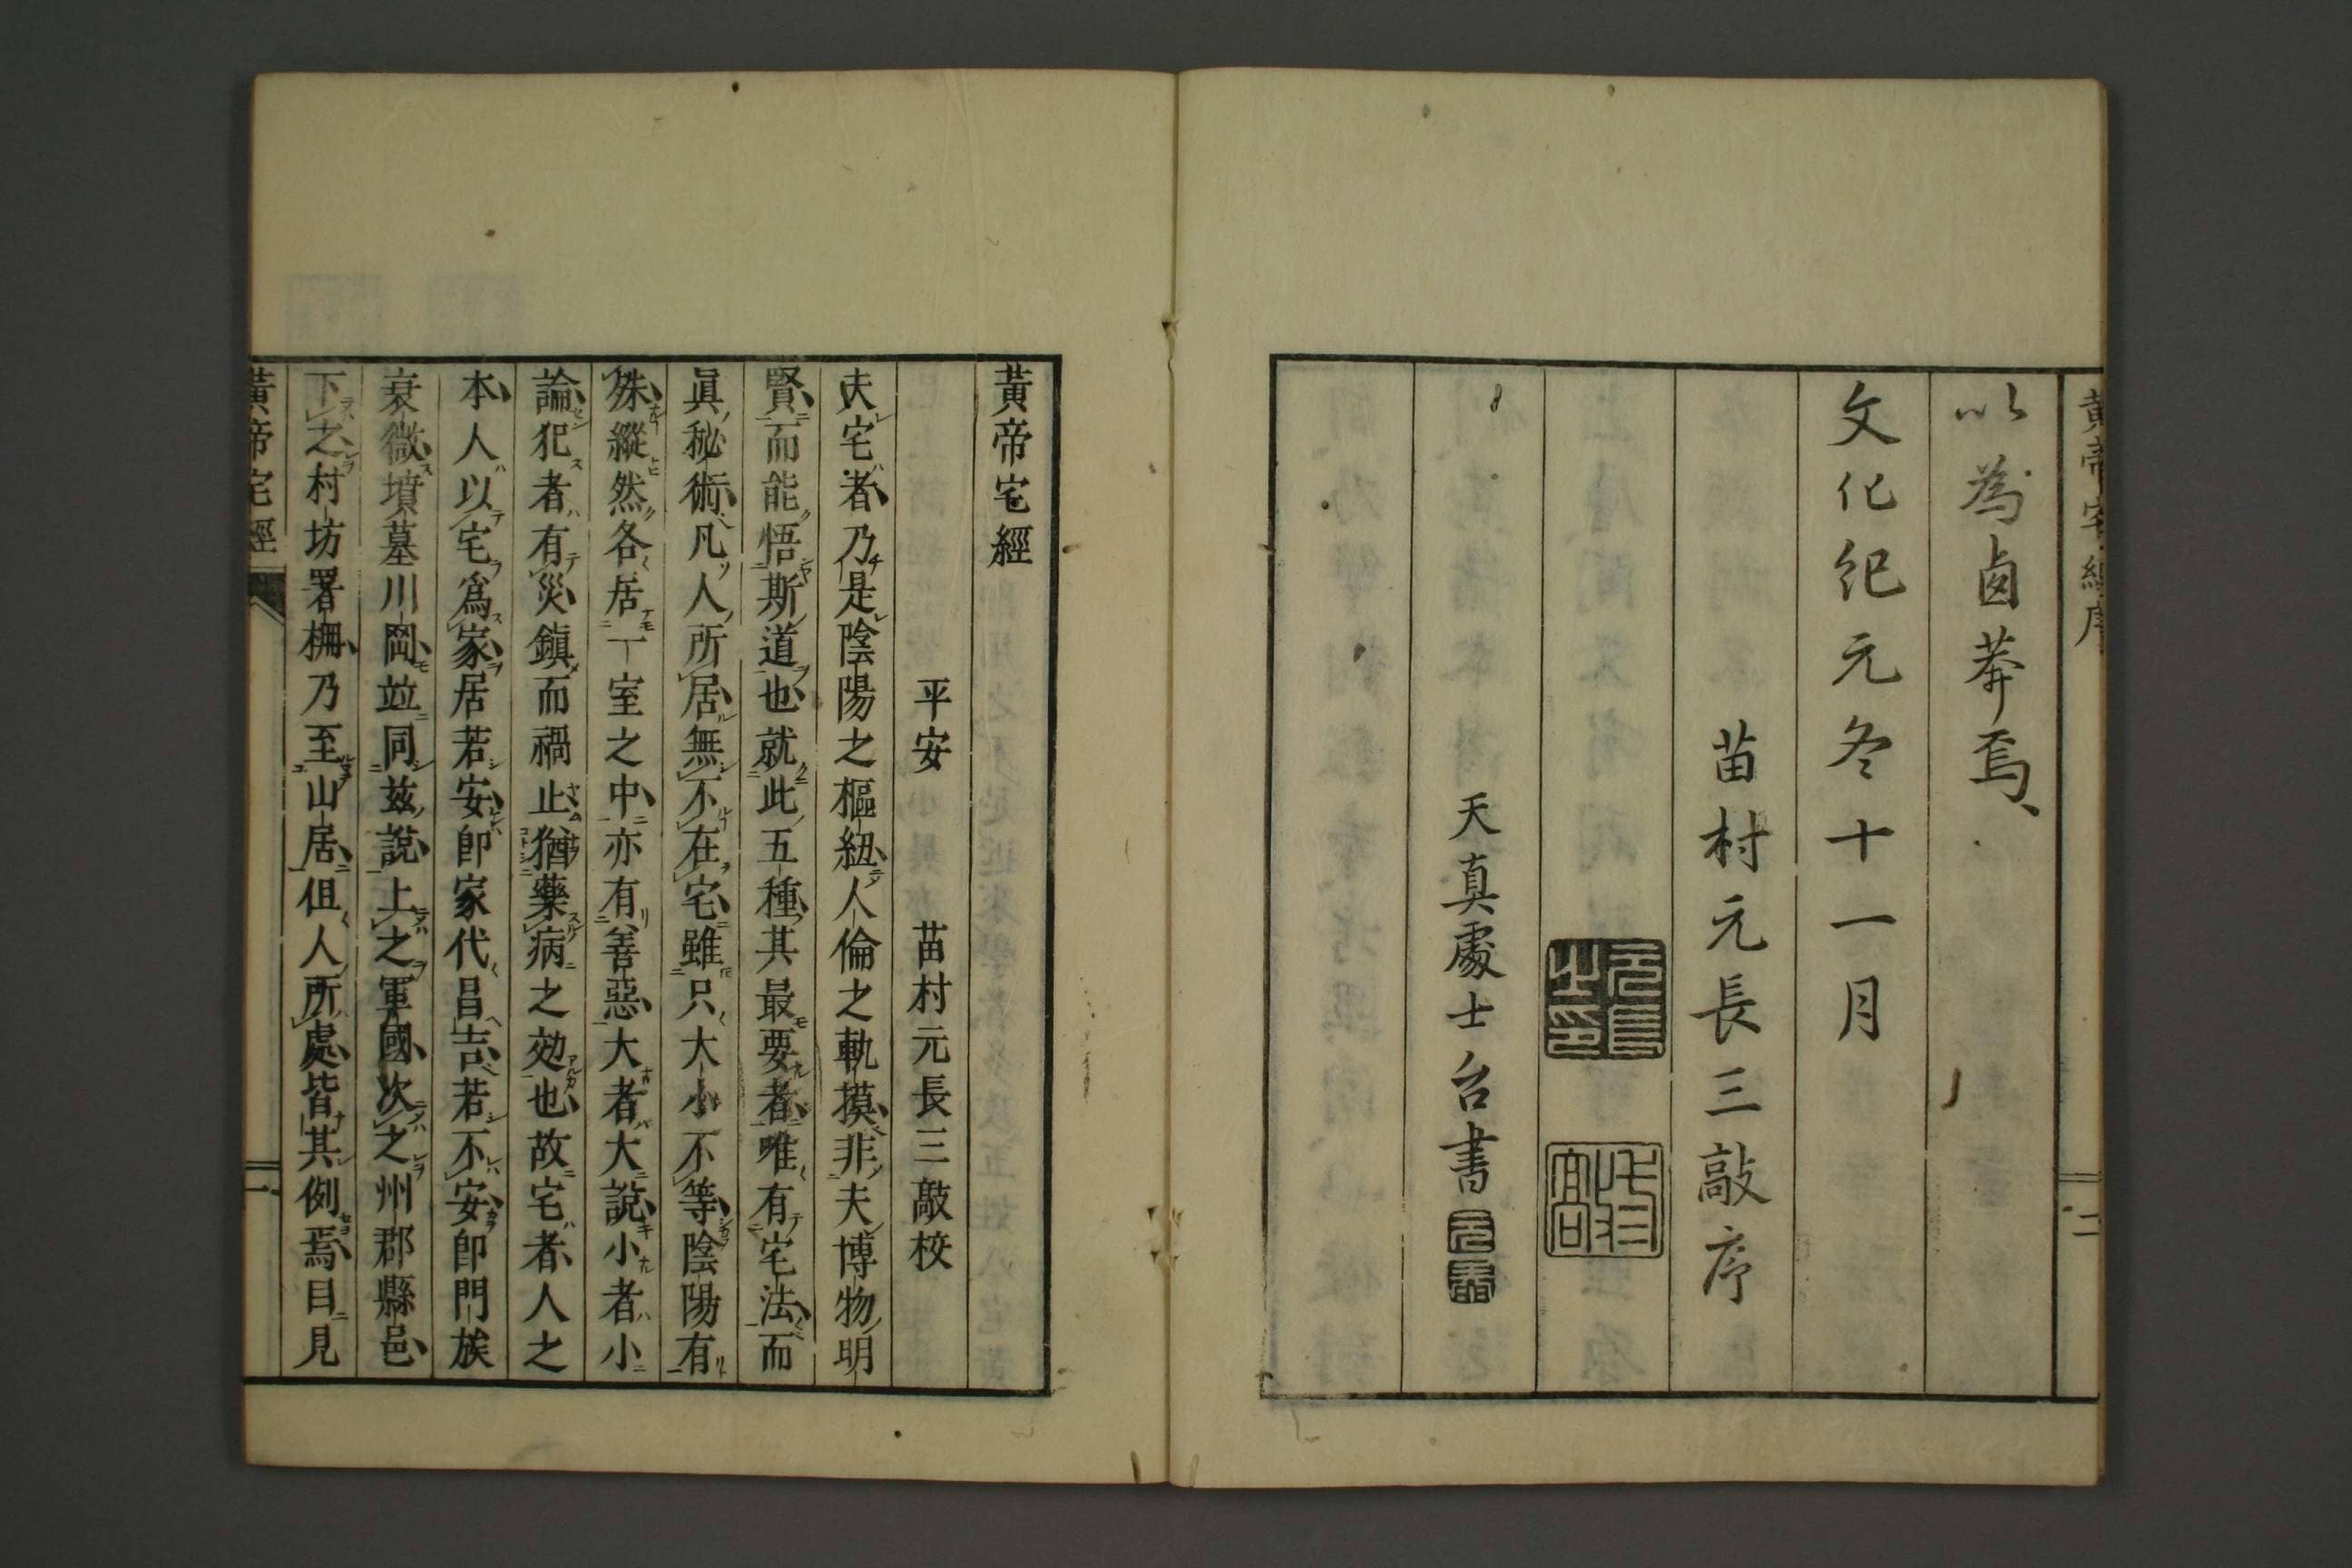 黄帝宅經序
二
以為鹵莽焉、
文化紀元冬十一月
苗村元長三敲序
天真處士台書
黃帝宅經
平安　苗村元長三敲校
夫宅者乃是陰陽之樞紐人倫之軌摸非夫博物明
賢而能悟斯道也就此五種其最要者唯有宅法而
眞秘術凡人所居無不在宅雖只大小不等陰陽有
殊縱然各居一室之中亦有善惡大者大說小者小
論犯者有災鎮而禍止猶藥病之効也故宅者人之
本人以宅爲家居若安卽家代昌吉若不安卽門族
衰微墳墓川岡竝同茲說上之軍國次之州郡縣邑
下之村坊署柵乃至山居但人所處皆其例焉目見
黃帝宅經
一